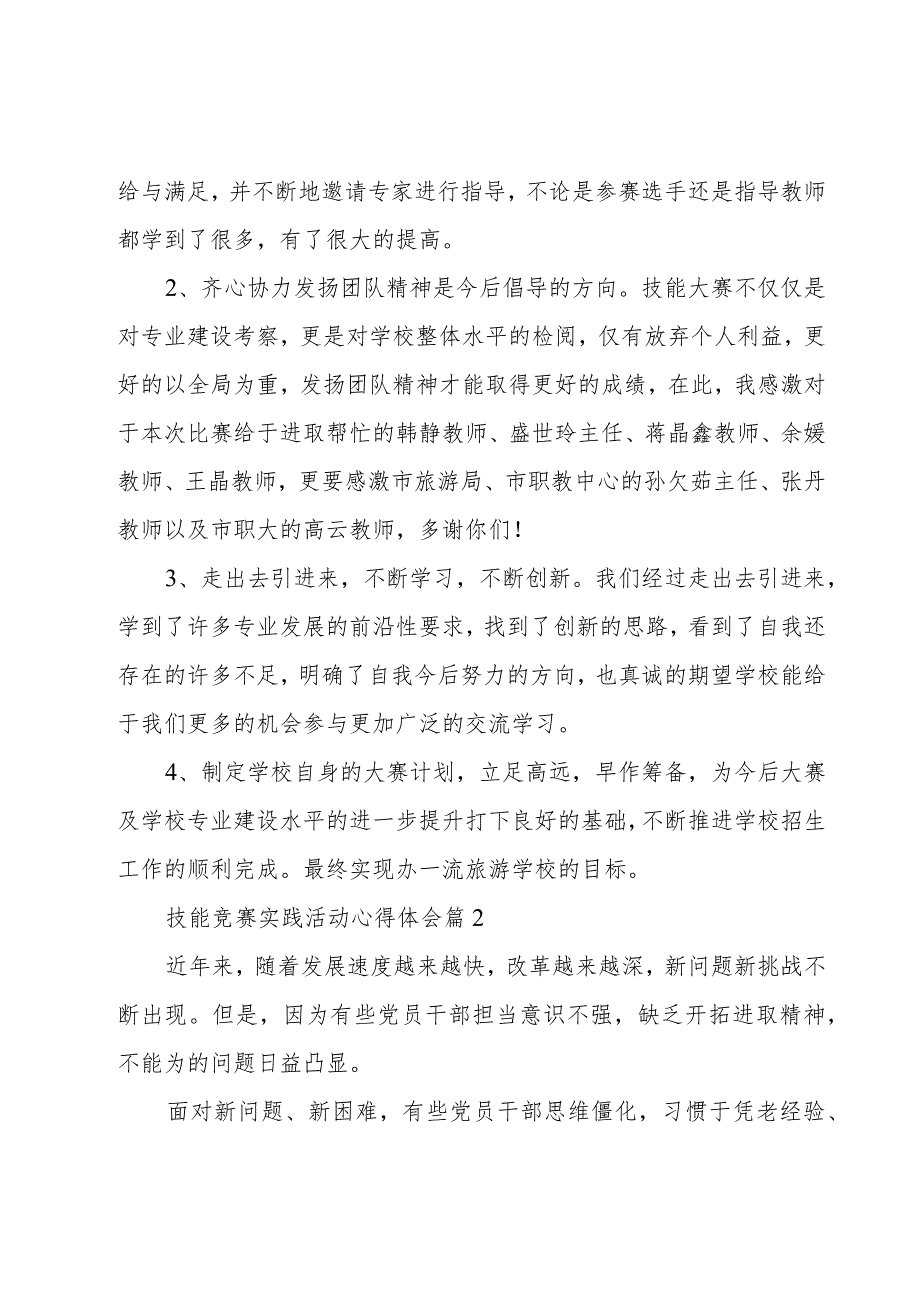 给与满足，并不断地邀请专家进行指导，不论是参赛选手还是指导教师
都学到了很多，有了很大的提高。
2、齐心协力发扬团队精神是今后倡导的方向。技能大赛不仅仅是
对专业建设考察，更是对学校整体水平的检阅，仅有放弃个人利益，更
好的以全局为重，发扬团队精神才能取得更好的成绩，在此，我感激对
于本次比赛给于进取帮忙的韩静教师、盛世玲主任、蒋晶鑫教师、余媛
教师、王晶教师，更要感激市旅游局、市职教中心的孙欠茹主任、张丹
教师以及市职大的高云教师，多谢你们！
3、走出去引进来，不断学习，不断创新。我们经过走出去引进来，
学到了许多专业发展的前沿性要求，找到了创新的思路，看到了自我还
存在的许多不足，明确了自我今后努力的方向，也真诚的期望学校能给
于我们更多的机会参与更加广泛的交流学习。
4、制定学校自身的大赛计划，立足高远，早作筹备，为今后大赛
及学校专业建设水平的进一步提升打下良好的基础，不断推进学校招生
工作的顺利完成。最终实现办一流旅游学校的目标。
技能竞赛实践活动心得体会篇 2
近年来，随着发展速度越来越快，改革越来越深，新问题新挑战不
断出现。但是，因为有些党员干部担当意识不强，缺乏开拓进取精神，
不能为的问题日益凸显。
面对新问题、新困难，有些党员干部思维僵化，习惯于凭老经验、